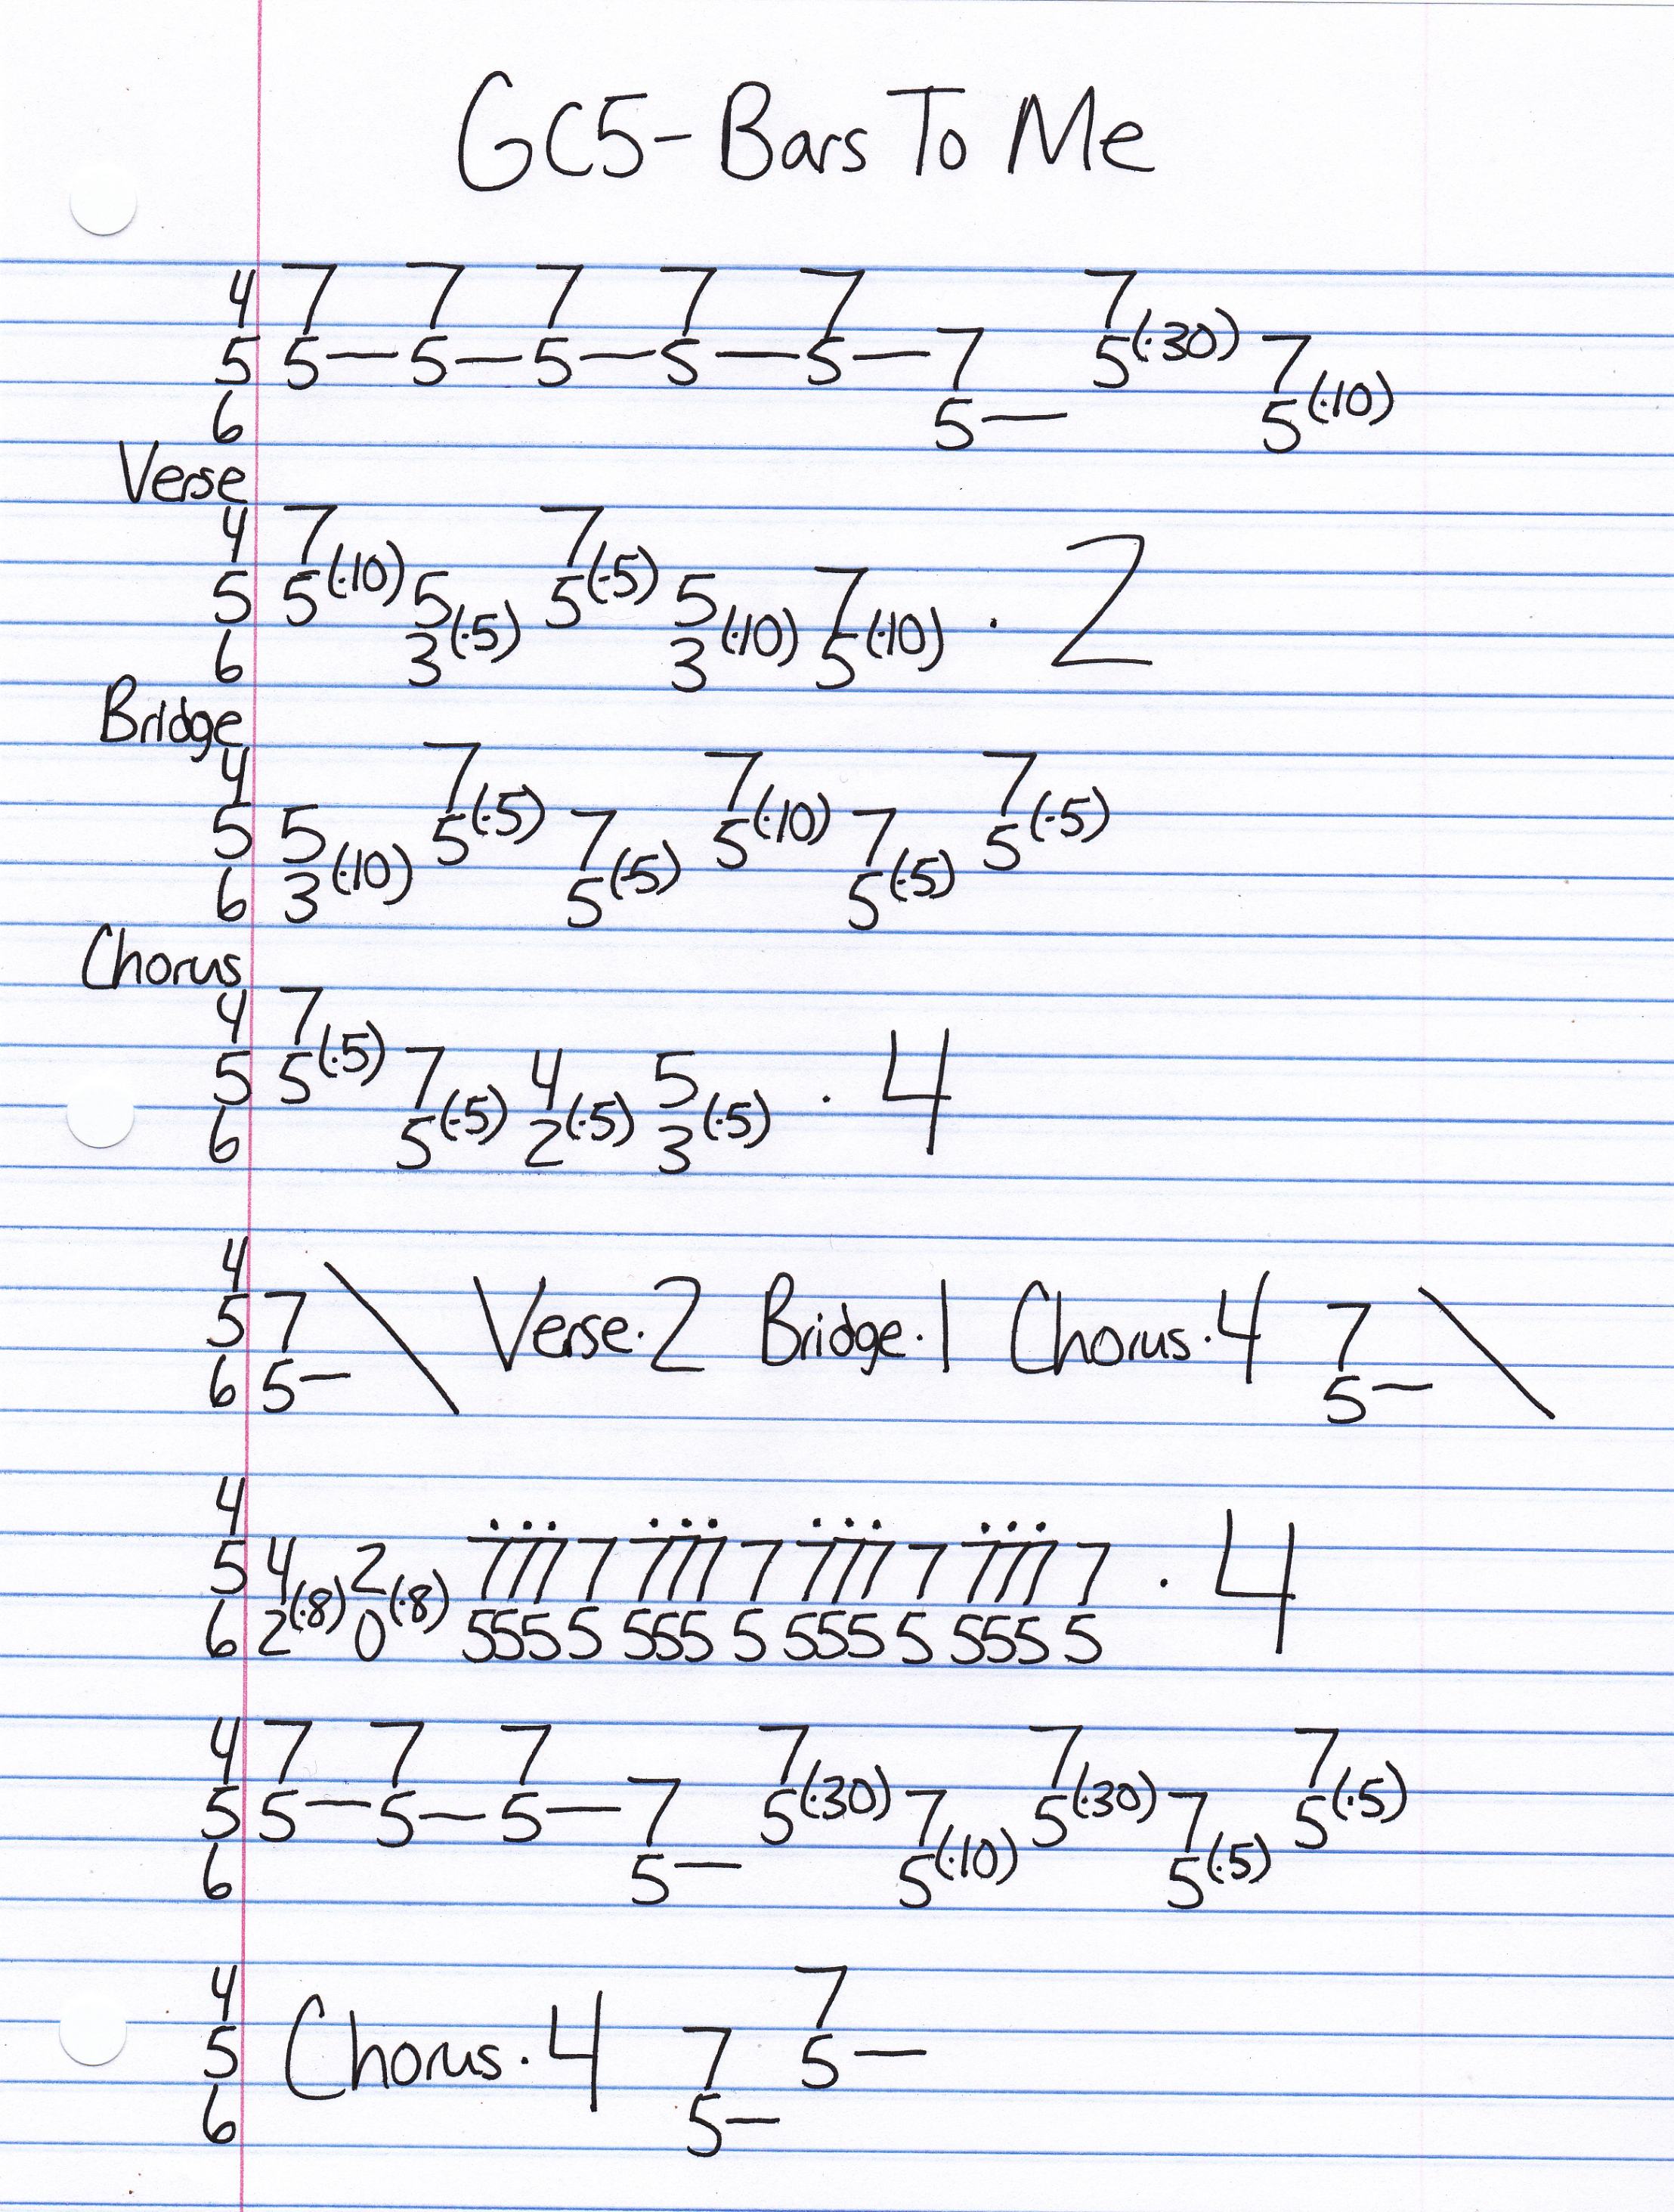 GC5- Bars To Me
4 7 7 7 7 7 7
5 5—5—5—5—5—7 5(·30) 7
6 5— 5(·10)
Verse
4 7 7
5 5(·10) 5 5(·5) 5 7 · 2
6 3(·5) 3(·10) 5(·10)
Bridge
4 7 7 7
5 5 5(·5) 7 5(·10) 7 5(·5)
6 3(·10) 5(·5) 5(·5)
Chorus
4 7
5 5(·5) 7 4 5 · 4
6 5(·5) 2(·5) 3(·5)
4
5 7 \ Verse·2 Bridge·1 Chorus·4 7 \
6 5— 5—
4
5 4 2 777 7 777 7 777 7 777 7 · 4
6 2(·8) 0(·8) 555 5 555 5 555 5 555 5
4 7 7 7 7 7 7
5 5—5—5—7 5(·30) 7 5(·30) 7 5(·5)
6 5— 5(·10) 5(·5)
4 7
5 Chorus·4 7 5—
6 5—